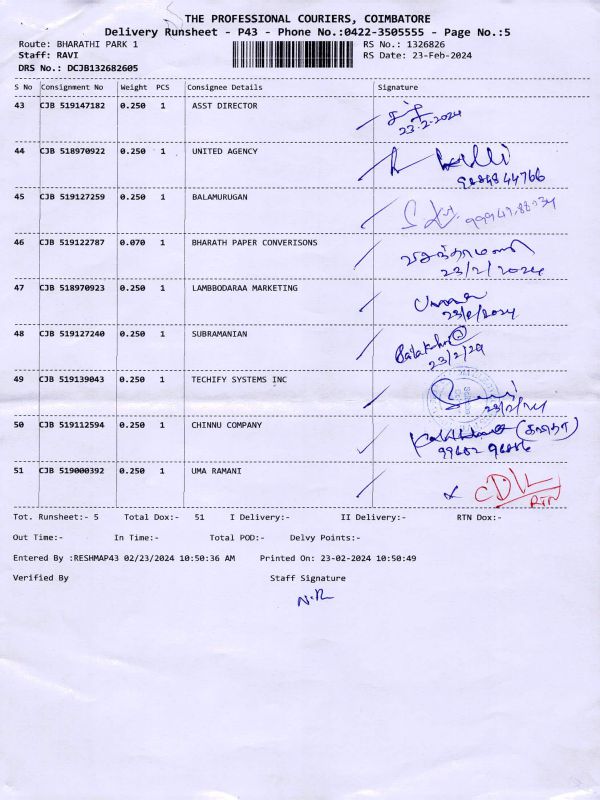 THE PROFESSIONAL COURIERS, COIMBATORE
Delivery Runsheet - P43 - Phone No.:0422-3505555 - Page No.:5
Route: BHARATHI PARK 1 RS No.: 1326826
Staff: RAVI RS Date: 23-Feb-2024
DRS No.: DCJB132682605
S No Consignment No Weight PCS Consignee Details Signature
43 CJB 519147182 0.250 1 ASST DIRECTOR
23.2.2024
44 CJB 518970922 0.250 1 UNITED AGENCY
45 CJB 519127259 0.250 1 BALAMURUGAN
46 CJB 519122787 0.070 1 BHARATH PAPER CONVERISONS
வசந்தாமணி
23/2/2024
47 CJB 518970923 0.250 1 LAMBBODARAA MARKETING
23/2/2024
48 CJB 519127240 0.250 1 SUBRAMANIAN
23/2/24
49 CJB 519139043 0.250 1 TECHIFY SYSTEMS INC
23/2/24
50 CJB 519112594 0.250 1 CHINNU COMPANY
51 CJB 519000392 0.250 1 UMA RAMANI
CD/L
RTN
Tot. Runsheet:- 5 Total Dox:- 51 I Delivery:- II Delivery:- RTN Dox:-
Out Time:- In Time:- Total POD:- Delvy Points:-
Entered By :RESHMAP43 02/23/2024 10:50:36 AM Printed On: 23-02-2024 10:50:49
Verified By Staff Signature
N.R